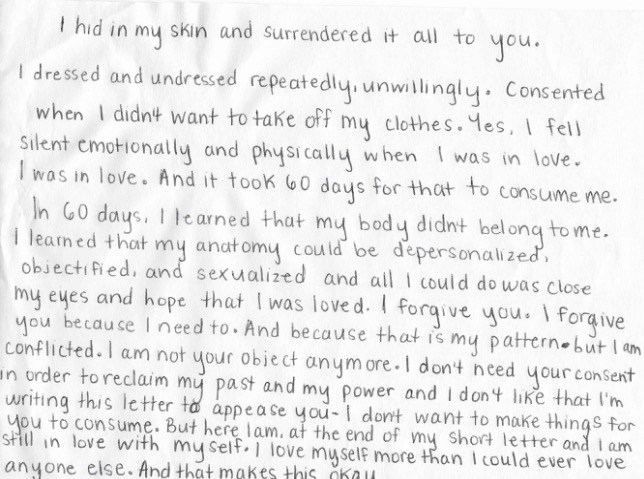 I hid in my skin and surrendered it all to you.
I dressed and undressed repeatedly, unwillingly. Consented
when I didn't want to take off my clothes. Yes, I fell
silent emotionally and physically when I was in love.
I was in love. And it took 60 days for that to consume me.
In 60 days, I learned that my body didnt belong to me.
I learned that my anatomy could be depersonalized,
objectified, and sexualized and all I could do was close
my eyes and hope that I was loved. I forgive you. I forgive
you because I need to. And because that is my pattern. but I am
conflicted. I am not your object anymore. I don't need your consent
in order to reclaim my past and my power and I don't like that I'm
writing this letter to appease you- I don't want to make things for
you to consume. But here I am, at the end of my short letter and I am
still in love with myself. I love myself more than I could ever love
anyone else. And that makes this okay